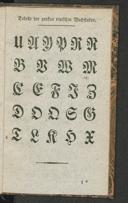 Tabelle der großen deutschen Buchstaben.
U A Y P R N
B V W M
C E F I Z
D O Q S G
T L K H X